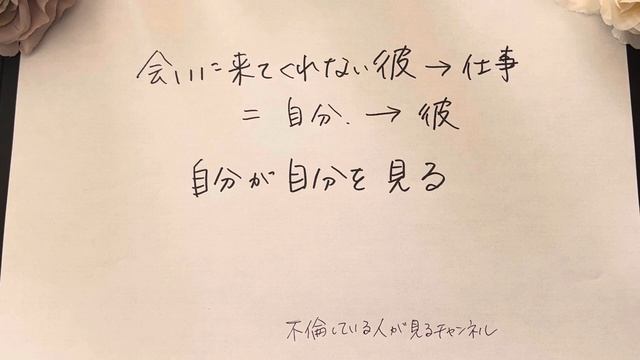 会いに来てくれない彼→仕事
= 自分.→彼
自分が自分を見る
不倫している人が見るチャンネル